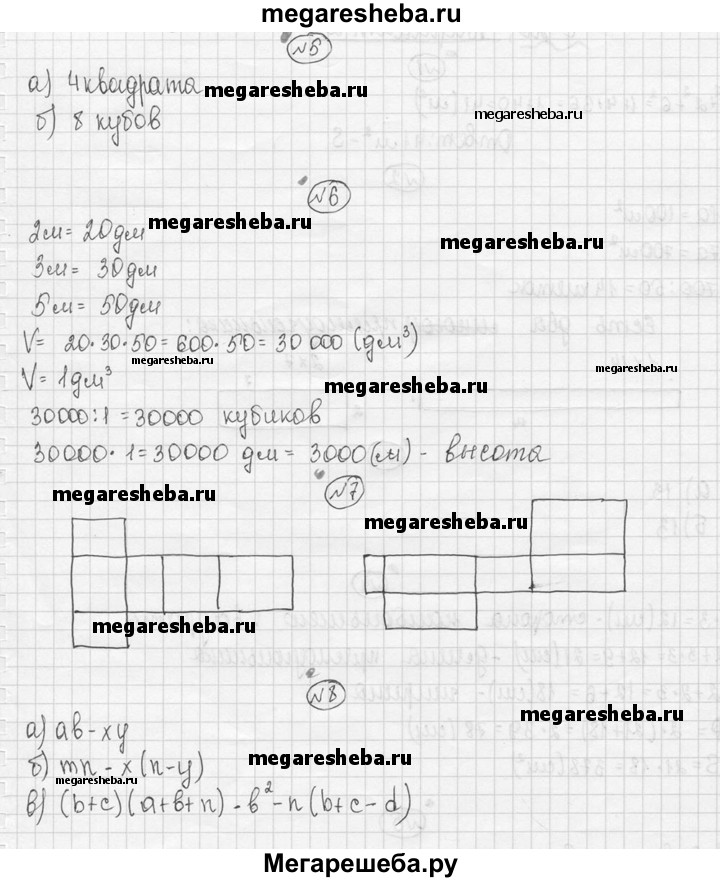 megaresheba.ru
№5
а) 4 квадрата megaresheba.ru
б) 8 кубов megaresheba.ru
№6
2м = 20дм megaresheba.ru
megaresheba.ru
3м = 30дм
5м = 50дм
V= 20·30·50 = 600·50 = 30 000 (дм³)
megaresheba.ru
V= 1дм³ megaresheba.ru
30000:1 = 30000 кубиков
30000·1 = 30000 дм = 3000(м) - высота
№7
megaresheba.ru
megaresheba.ru
megaresheba.ru
№8
а) ab - xy megaresheba.ru
б) mn - x(n-y) megaresheba.ru
megaresheba.ru
в) (b+c)(a+b+n) - b² - n(b+c-d)
Мегарешеба.ру